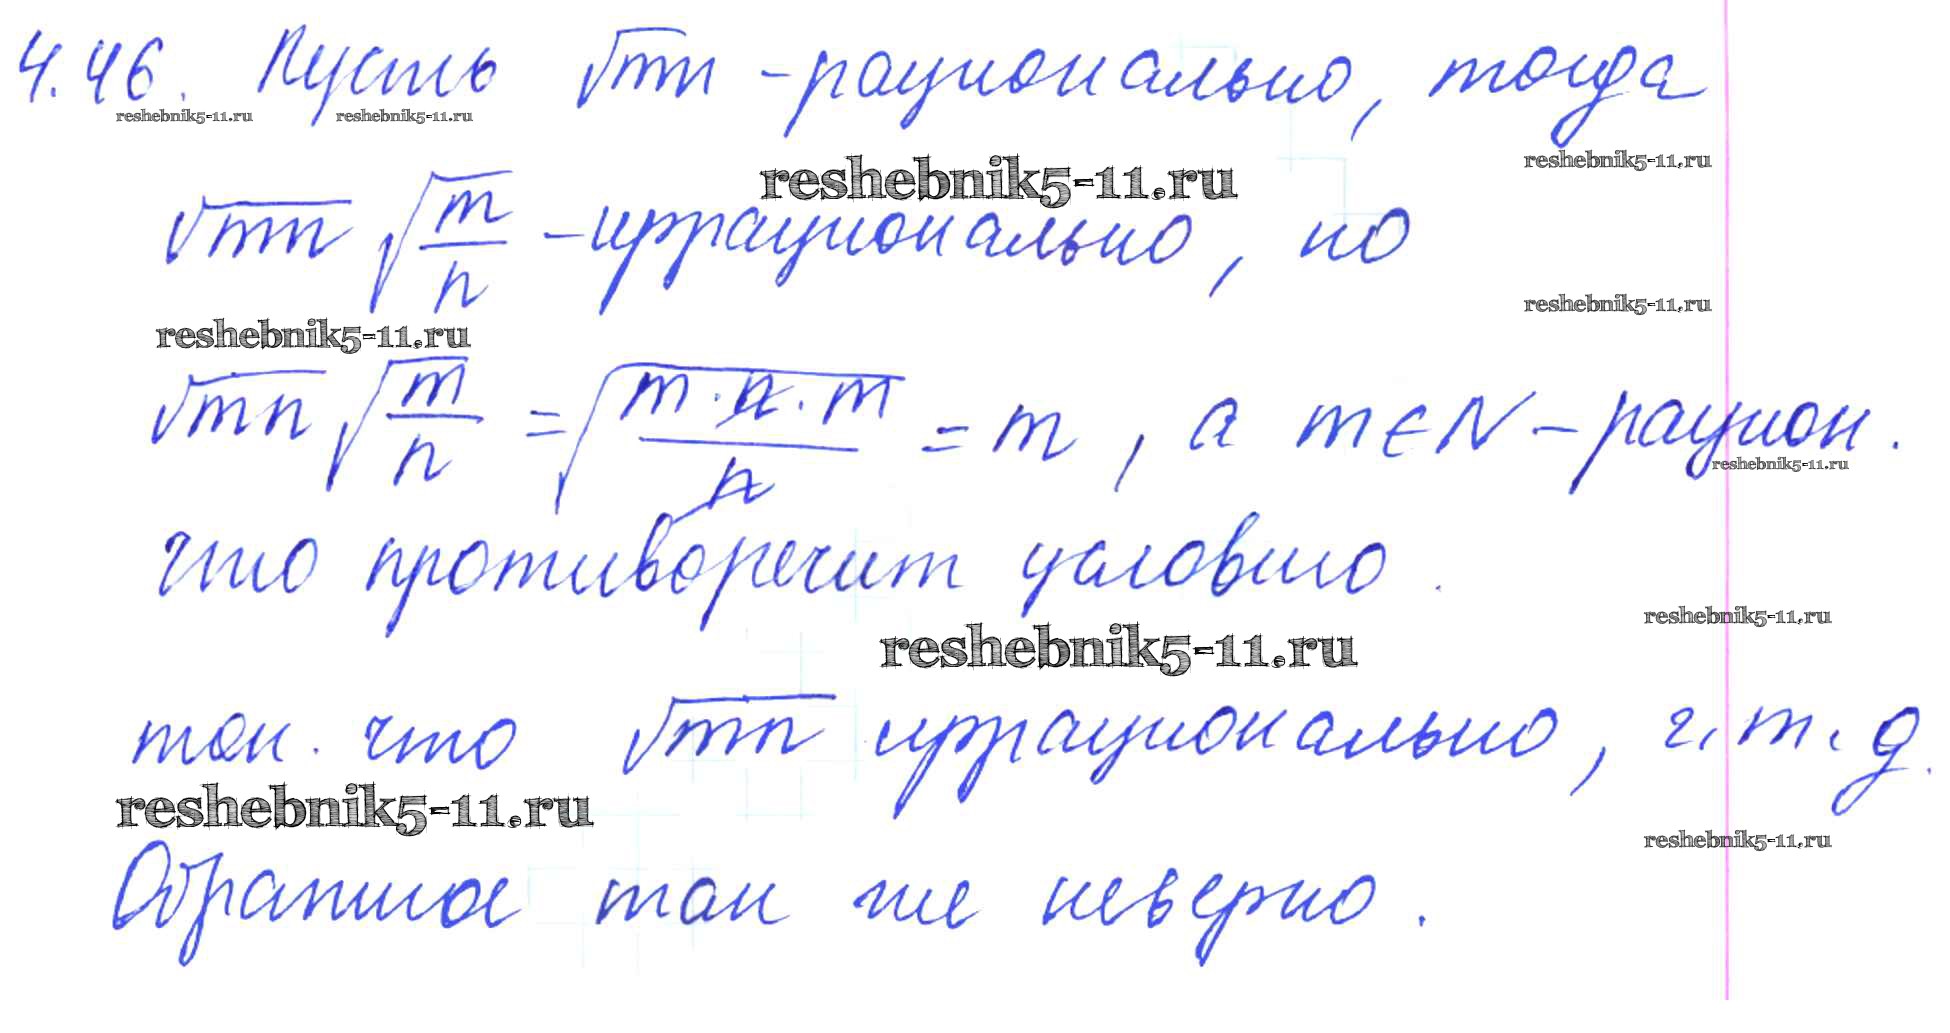 4.46. Пусть √mn - рационально, тогда
reshebnik5-11.ru reshebnik5-11.ru
reshebnik5-11.ru reshebnik5-11.ru
√mn √(m/n) - иррационально, но
reshebnik5-11.ru
reshebnik5-11.ru
√mn √(m/n) = √(m·n·m/n) = m, а m∈N - рацион.
reshebnik5-11.ru
что противоречит условию.
reshebnik5-11.ru
reshebnik5-11.ru
так. что √mn иррационально, ч.т.д.
reshebnik5-11.ru
reshebnik5-11.ru
Обратное так же неверно.